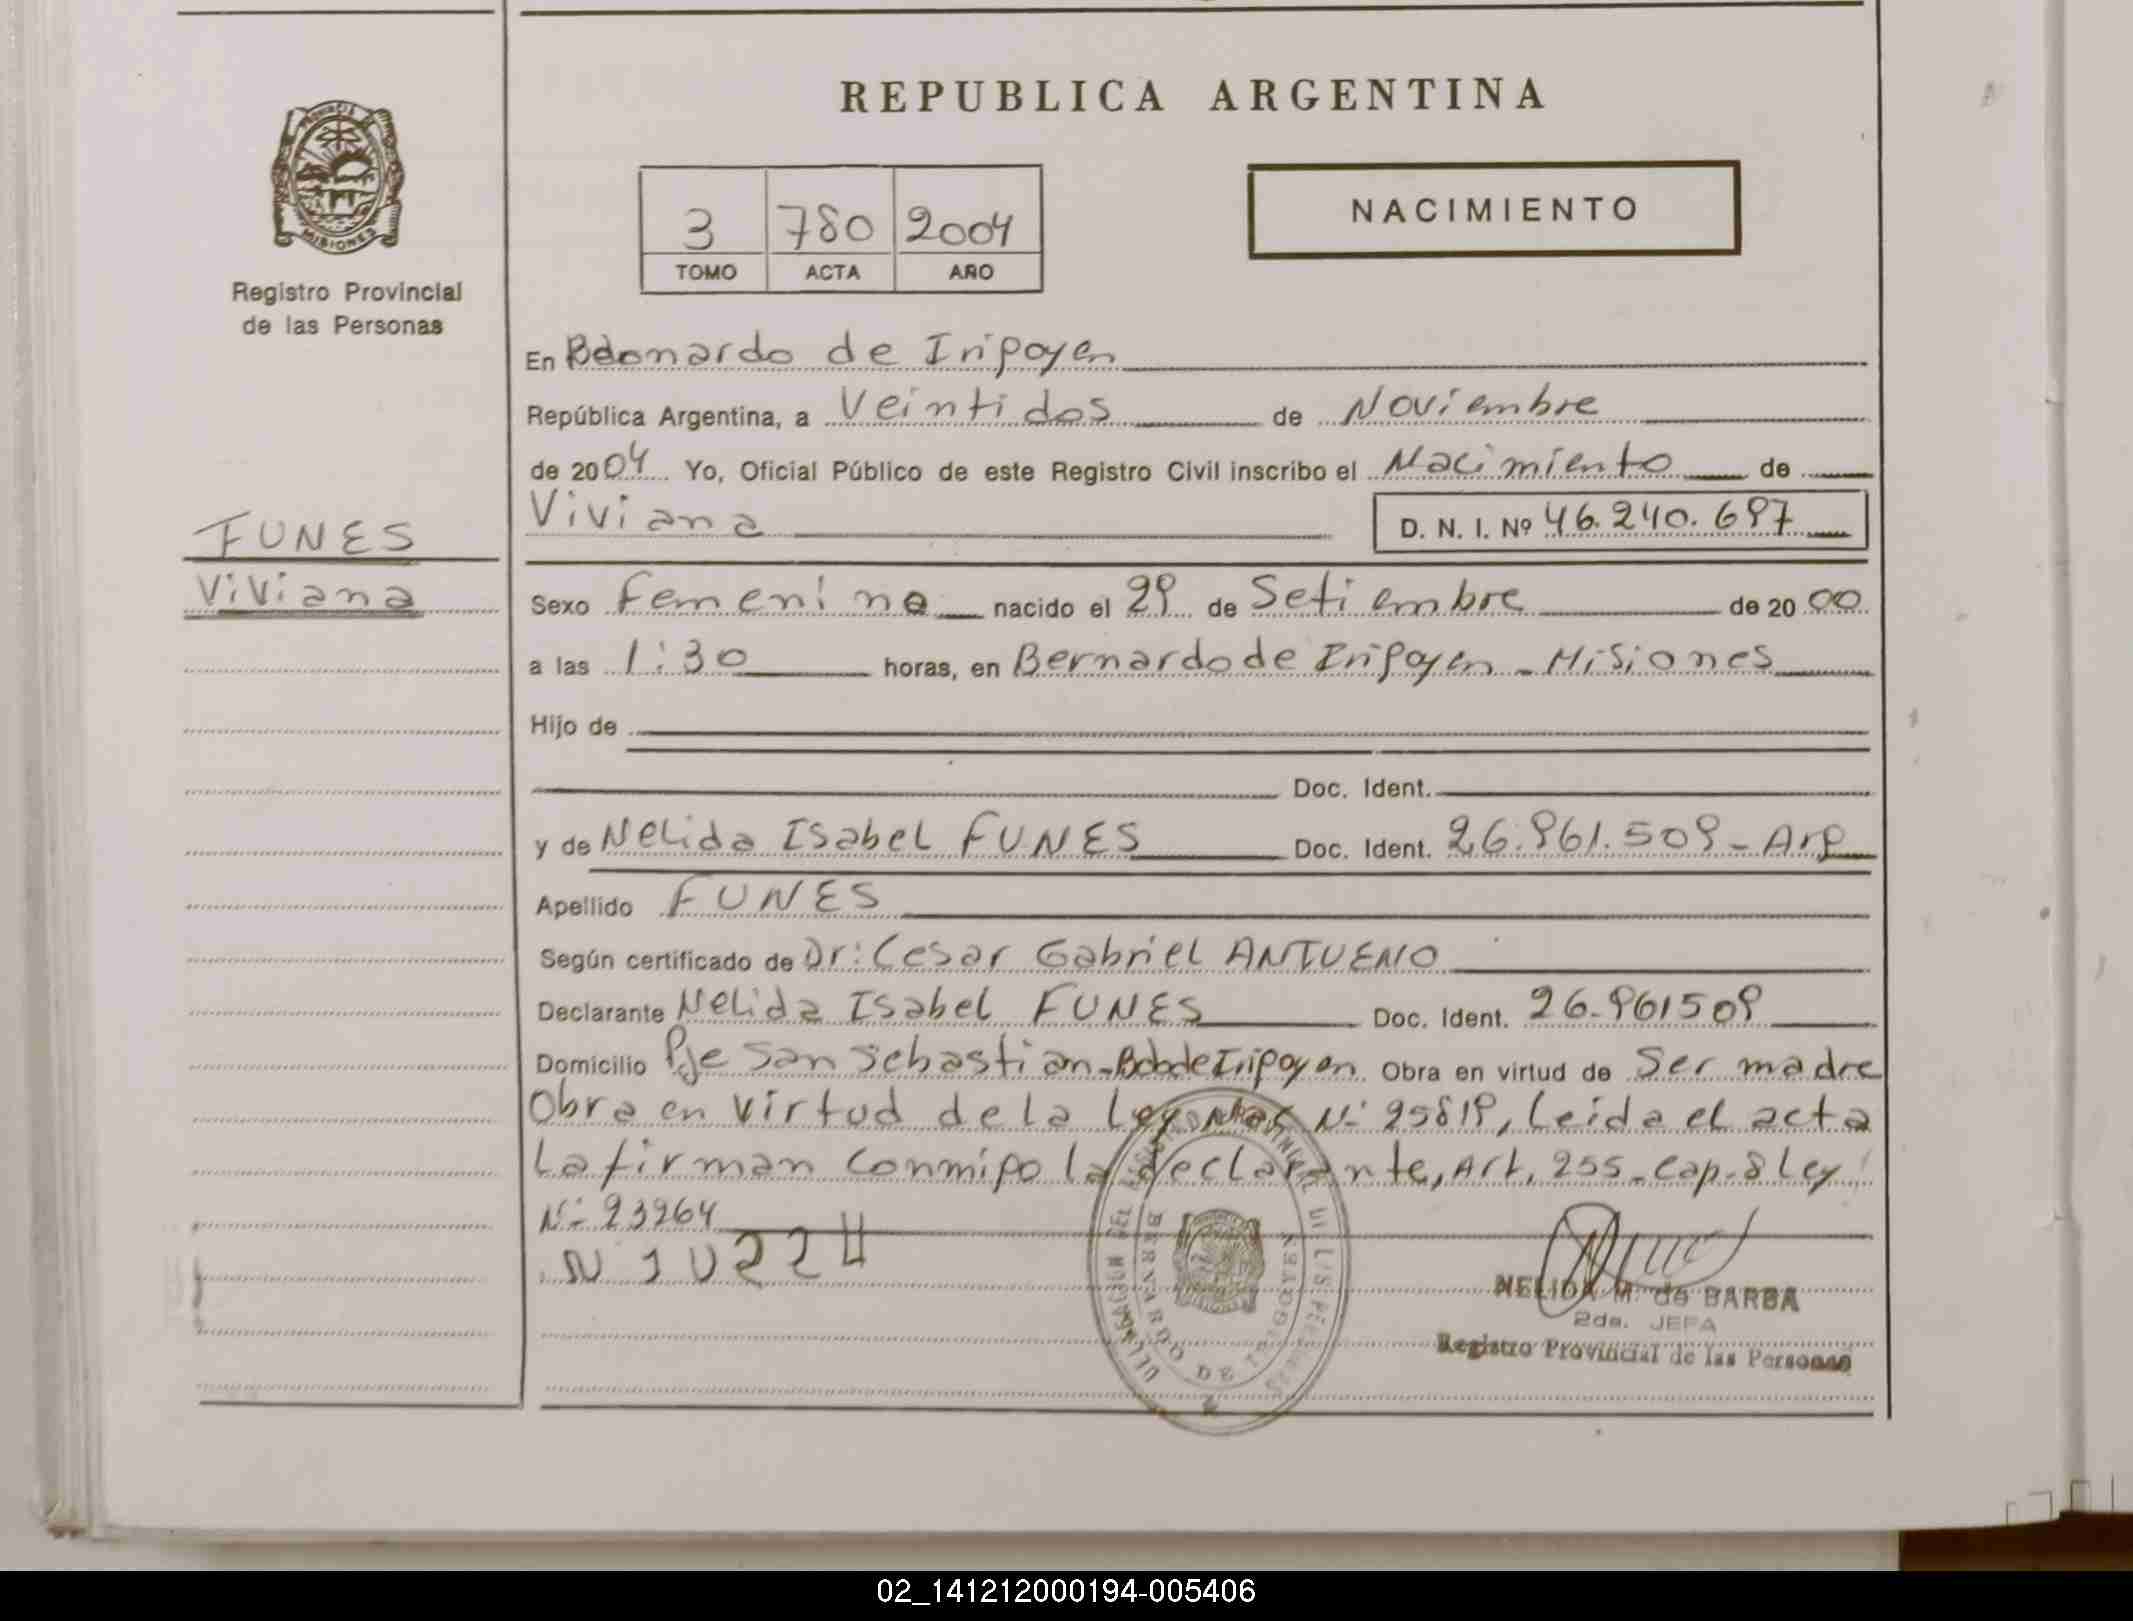 REPUBLICA ARGENTINA
PROVINCIA DE
MISIONES
Registro Provincial
de las Personas
3 780 2004
TOMO ACTA AÑO
NACIMIENTO
En Bernardo de Irigoyen
República Argentina, a Veintidos de Noviembre
de 2004 Yo, Oficial Público de este Registro Civil inscribo el Nacimiento de
Viviana D. N. I. Nº 46.240.697
FUNES
Viviana
Sexo Femenino nacido el 29 de Setiembre de 20 00
a las 1:30 horas, en Bernardo de Irigoyen - Misiones
Hijo de
Doc. Ident.
y de Nelida Isabel FUNES Doc. Ident. 26.961.509 - Arg
Apellido FUNES
Según certificado de Dr: Cesar Gabriel ANTUENO
Declarante Nelida Isabel FUNES Doc. Ident. 26.961509
Domicilio Pje San Sebastian - Bdo de Irigoyen Obra en virtud de Ser madre
Obra en virtud de la Ley Nac N: 25819, Leida el acta
La firman conmigo la declarante, Art. 255 - Cap. 8 Ley
N: 23264
N 10224
BERNARDO DE IRIGOYEN
NELIDA M. de BARBA
2da. JEFA
Registro Provincial de las Personas
02_141212000194-005406